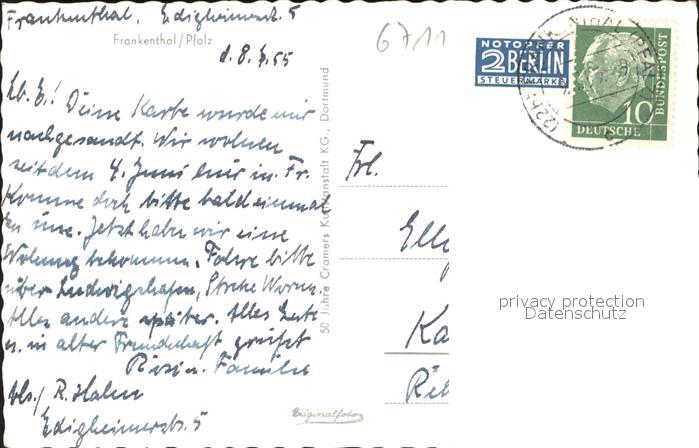 Frankenthal, Edigheimerstr. 5
Frankenthal/Pfalz
d. 8. 7. 55
6711
Lb. E.! Deine Karte wurde mir
nachgesandt. Wir wohnen
seit dem 4. Juni hier in Fr.
Komme doch bitte bald einmal
zu uns. Jetzt haben wir eine
Wohnung bekommen. Fahre bitte
über Ludwigshafen, Strecke Worms.
Alles andere später. Alles Gute
u. in alter Freundschaft grüßt
Rösi u. Familie
Abs./ R. Hahn
Edigheimerstr. 5
50 Jahre Cramers Kunstanstalt KG., Dortmund
Originalfoto
NOTOPFER
2 BERLIN
STEUERMARKE
10
DEUTSCHE
BUNDESPOST
Frl.
Elly
Ka
privacy protection
Datenschutz